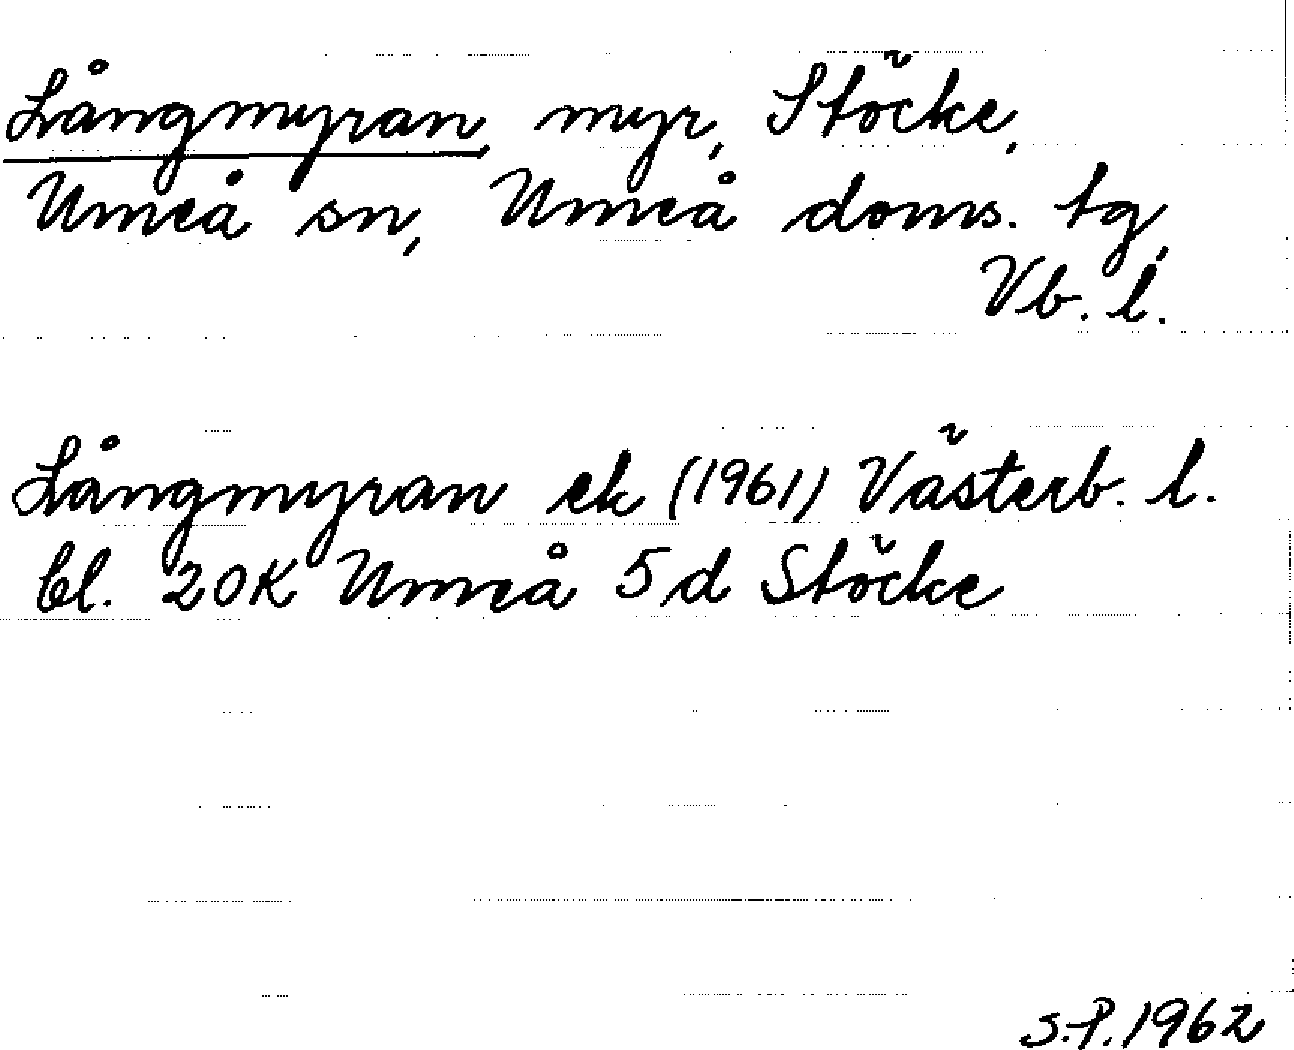 Långmyran, myr, Stöcke,
Umeå sn, Umeå doms. tg,
Vb. l.
Långmyran ek (1961) Västerb. l.
bl. 20K Umeå 5d Stöcke
S.P. 1962